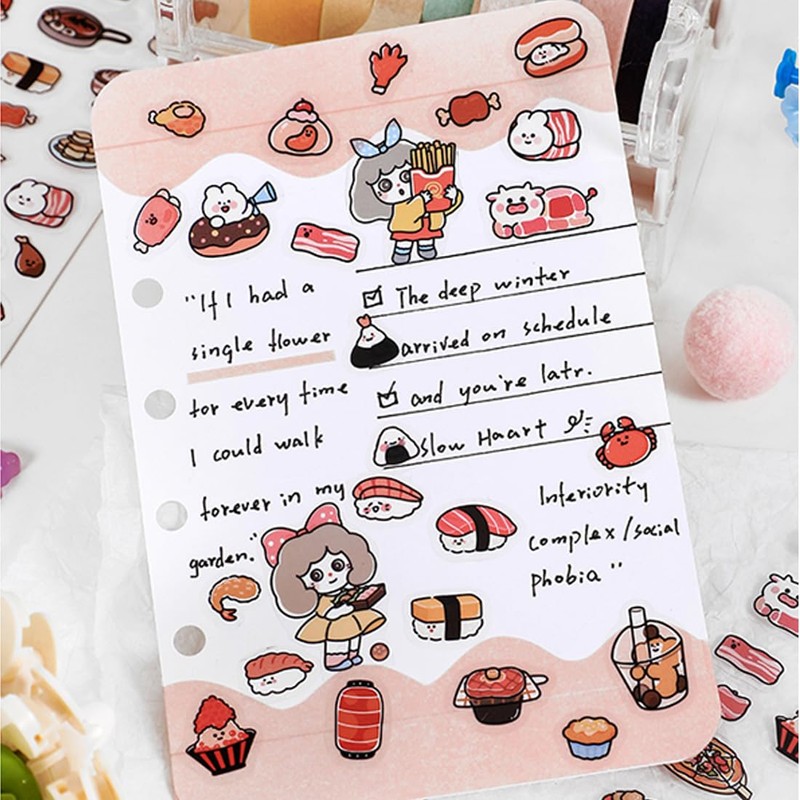 "If I had a
single flower
for every time
I could walk
forever in my
garden."
The deep winter
arrived on schedule
and you're latr.
Slow Haart
Inferiority
complex/social
phobia"